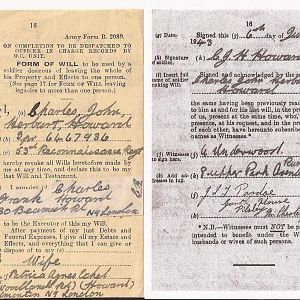 15
Army Form B. 2089.
ON COMPLETION TO BE DESPATCHED TO
OFFICER IN CHARGE RECORDS BY
O.C. UNIT.
FORM OF WILL to be used by a
soldier desirous of leaving the whole of
his Property and Effects to one person.
(See page 17 for FORM OF WILL leaving
legacies to more than one person.)
I Charles, John,
Herbert, Howard
53rd Reconnaissance Regt
hereby revoke all Wills heretofore made by
me at any time, and declare this to be my
last Will and Testament.
I appoint Charles
Frank Howard
N9 London
to be the Executor of this my Will.
After payment of my just Debts and
Funeral Expenses, I give all my Estate and
Effects, and everything that I can give or
dispose of to my
Wife
Patricia Agnes
(Howard)
Edmonton N9 London
16
(g) Date. Signed this 6th day of
1943
(h) Signature of soldier. C J H Howard
(i) Insert full name of soldier making Will. Signed and acknowledged by the
Charles John
Howard
the same having been previously
to him as and for his will, in the
of us, present at the same time, who,
presence, at his request, and in the
of each other, have hereunto subscribed
as Witnesses *
Witness A Underwood
Park
Witness
* N.B.—Witnesses must NOT be
intended to benefit under the W
husbands or wives of such persons.